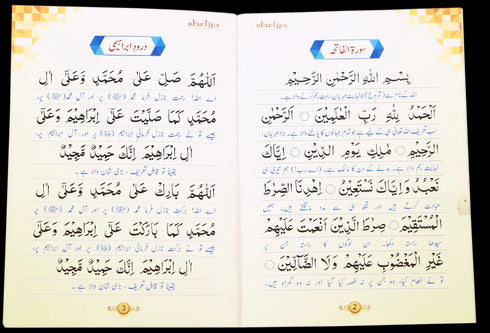 حرز اعظم
سورۃ الفاتحہ
بِسْمِ اللّٰهِ الرَّحْمٰنِ الرَّحِيْمِ
اللہ کے نام سے (شروع) جو نہایت مہربان، بہت رحم کرنے والا ہے۔
اَلْحَمْدُ لِلّٰهِ رَبِّ الْعٰلَمِيْنَ ۝ الرَّحْمٰنِ
سب تعریف اللہ تعالیٰ ہی کے لیے ہے جو تمام جہانوں کا پالنے والا ہے۔ بڑا مہربان
الرَّحِيْمِ ۝ مٰلِكِ يَوْمِ الدِّيْنِ ۝ اِيَّاكَ
نہایت رحم والا ہے۔ بدلے کے دن کا مالک ہے۔ (اے رب!) ہم تیری ہی
نَعْبُدُ وَ اِيَّاكَ نَسْتَعِيْنُ ۝ اِهْدِنَا الصِّرَاطَ
عبادت کرتے ہیں اور تجھ ہی سے مدد مانگتے ہیں۔ ہمیں
الْمُسْتَقِيْمَ ۝ صِرَاطَ الَّذِيْنَ اَنْعَمْتَ عَلَيْهِمْ
سیدھا راستہ دکھا۔ ان لوگوں کا راستہ جن پر
غَيْرِ الْمَغْضُوْبِ عَلَيْهِمْ وَلَا الضَّآلِّيْنَ ۝
تو نے انعام کیا۔ وہ جن پر نہ غصہ کیا گیا اور نہ وہ گمراہ ہیں۔
2
حرز اعظم
درود ابراہیمی
اَللّٰهُمَّ صَلِّ عَلٰى مُحَمَّدٍ وَعَلٰٓى اٰلِ
اے اللہ! رحمت نازل فرما محمد (ﷺ) پر اور آل محمد (ﷺ) پر،
مُحَمَّدٍ كَمَا صَلَّيْتَ عَلٰٓى اِبْرَاهِيْمَ وَعَلٰٓى
جیسے تو نے رحمت نازل فرمائی ابراہیم پر اور آل ابراہیم پر،
اٰلِ اِبْرَاهِيْمَ اِنَّكَ حَمِيْدٌ مَّجِيْدٌ
یقیناً تو قابل تعریف، بڑی شان والا ہے۔
اَللّٰهُمَّ بَارِكْ عَلٰى مُحَمَّدٍ وَعَلٰٓى اٰلِ
اے اللہ! برکت نازل فرما محمد (ﷺ) پر اور آل محمد (ﷺ) پر،
مُحَمَّدٍ كَمَا بَارَكْتَ عَلٰٓى اِبْرَاهِيْمَ وَعَلٰٓى
جیسے تو نے برکت نازل فرمائی ابراہیم پر اور آل ابراہیم پر،
اٰلِ اِبْرَاهِيْمَ اِنَّكَ حَمِيْدٌ مَّجِيْدٌ
یقیناً تو قابل تعریف، بڑی شان والا ہے۔
3